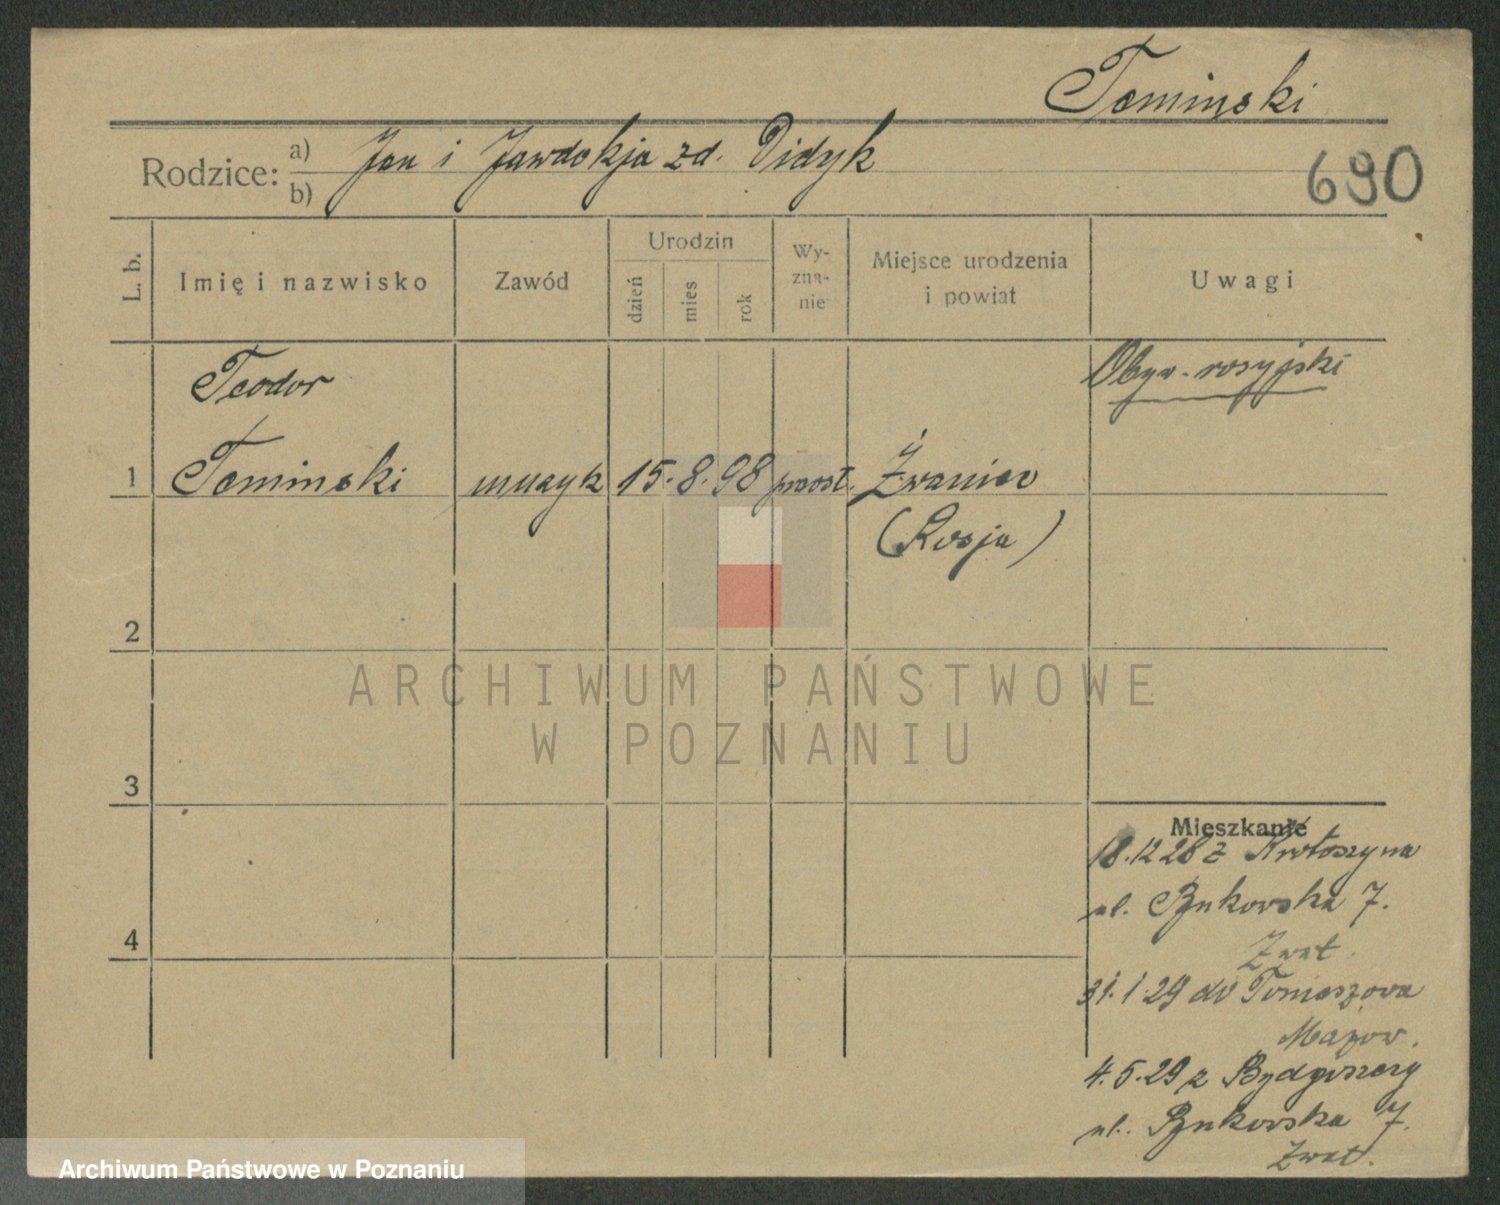 Teminski
Rodzice: a) Jan i Jawdokja zd. Didyk
b)
690
L. b.
Imię i nazwisko
Zawód
Urodzin
dzień
mies
rok
Wy-
zna-
nie
Miejsce urodzenia
i powiat
Uwagi
Teodor
Obyw. rosyjski
1 Teminski muzyk 15. 8. 98 prawosł. Żwaniec
(Rosja)
2
ARCHIWUM PAŃSTWOWE
W POZNANIU
3
Mieszkanie
18.12 28 z Krotoszyna
ul. Bukowska 7.
4
31. 1 29 do Tomaszowa
Mazow.
4. 5. 29 z Bydgoszczy
ul. Bukowska 7.
Archiwum Państwowe w Poznaniu